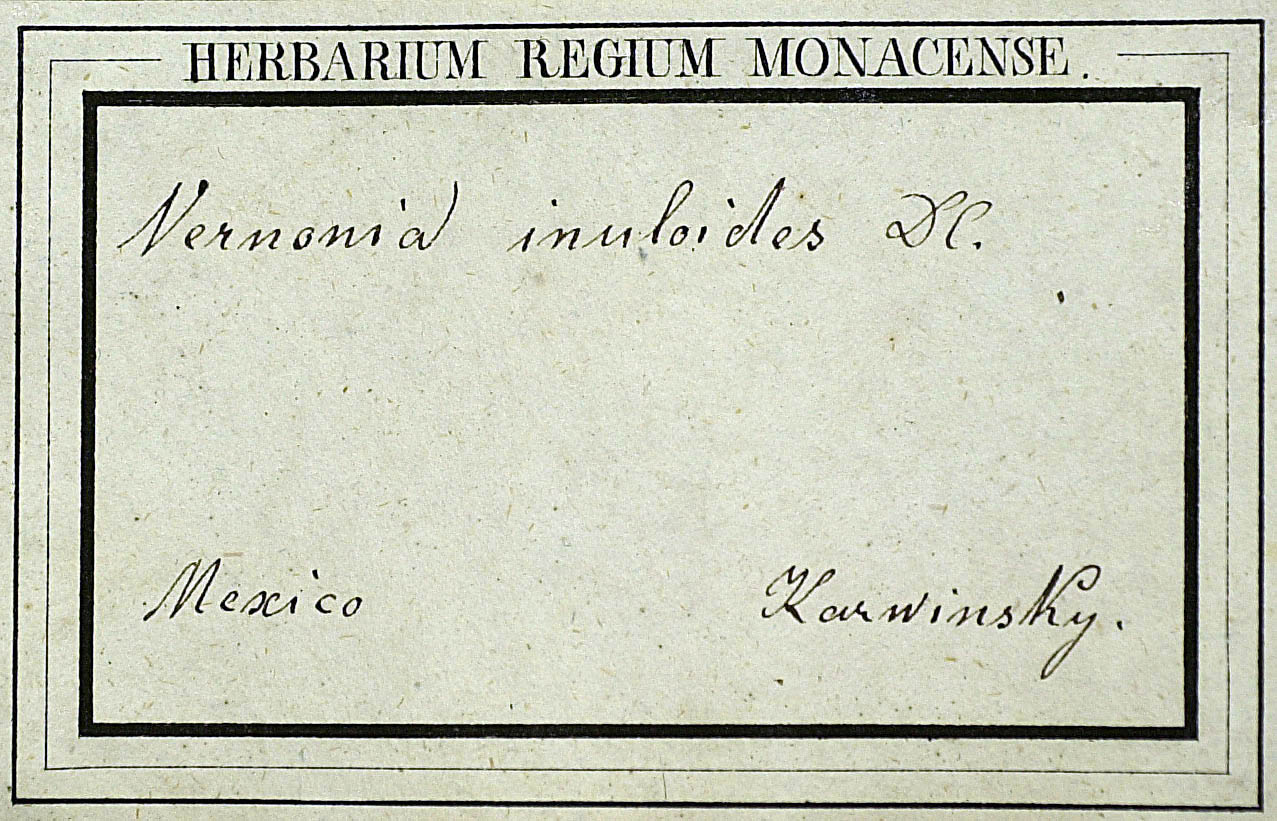 HERBARIUM REGIUM MONACENSE.
Vernonia inuloides DC.
Mexico Karwinsky.